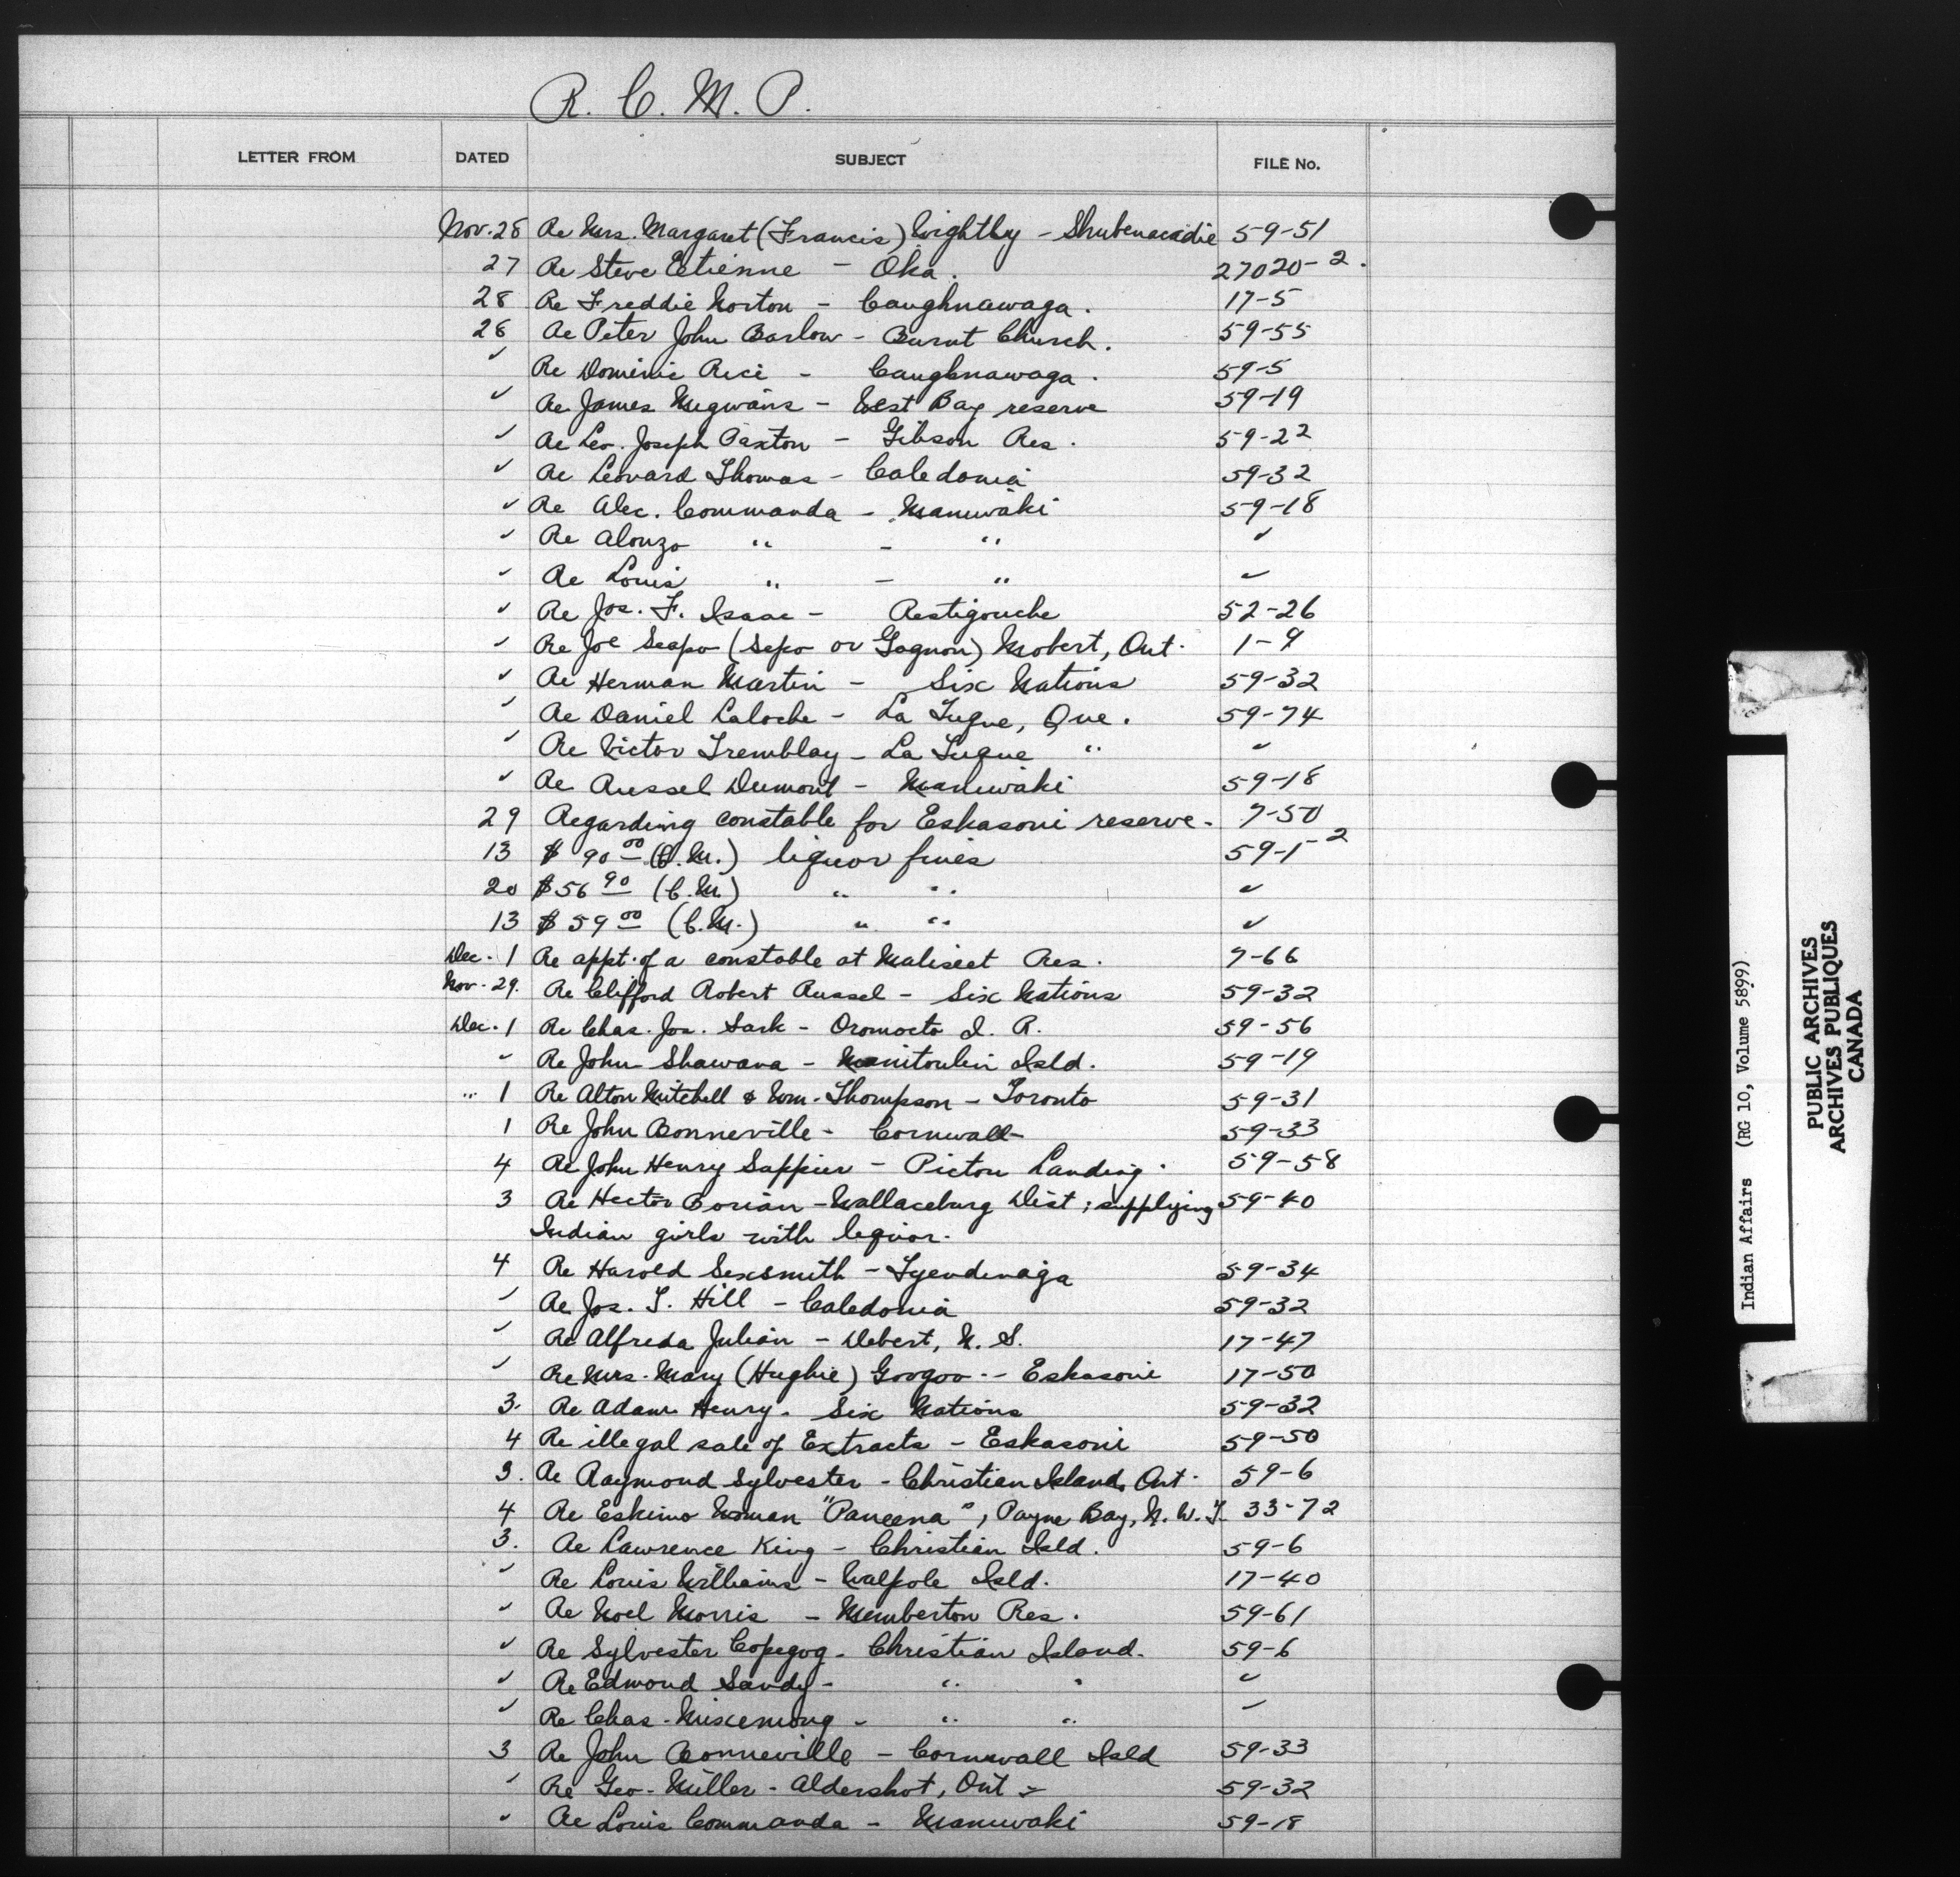 R. C. M. P.
LETTER FROM DATED SUBJECT FILE No.
Nov. 28 Re Mrs. Margaret (Francis) Wightby - Shubenacadie 59-51
27 Re Steve Etienne - Oka. 27020-2.
28 Re Freddie Norton - Caughnawaga. 17-5
28 Re Peter John Barlow - Burnt Church. 59-55
✓ Re Dominic Rice - Caughnawaga. 59-5
✓ Re James Megwans - West Bay reserve 59-19
✓ Re Leo. Joseph Paxton - Gibson Res. 59-22
✓ Re Leonard Thomas - Caledonia 59-32
✓ Re Alec. Commanda - Maniwaki 59-18
✓ Re Alonzo " - " ✓
✓ Re Louis " - " ✓
✓ Re Jos. F. Isaac - Restigouche 52-26
✓ Re Joe Seapo (Sepo or Gagnon) Mobert, Ont. 1-9
✓ Re Herman Martin - Six Nations 59-32
✓ Re Daniel Laloche - La Tuque, Que. 59-74
✓ Re Victor Tremblay - La Tuque " ✓
✓ Re Russel Dumont - Maniwaki 59-18
29 Regarding constable for Eskasoni reserve. 7-50
13 $ 90 00 (C.M.) liquor fines 59-1-2
20 $56 90 (C.M.) " " ✓
13 $ 59 00 (C.M.) " " ✓
Dec. 1 Re appt. of a constable at Maliseet Res. 7-66
Nov. 29. Re Clifford Robert Russel - Six Nations 59-32
Dec. 1 Re Chas. Jos. Sark - Oromocto I. R. 59-56
✓ Re John Shawana - Manitoulin Isld. 59-19
" 1 Re Alton Mitchell & Wm. Thompson - Toronto 59-31
1 Re John Bonneville - Cornwall 59-33
4 Re John Henry Sappier - Pictou Landing. 59-58
3 Re Hector Dorian - Wallaceburg Dist; supplying 59-40
Indian girls with liquor.
4 Re Harold Sexsmith - Tyendinaga 59-34
✓ Re Jos. T. Hill - Caledonia 59-32
✓ Re Alfreda Julian - Debert, N. S. 17-47
✓ Re Mrs. Mary (Hughie) Googoo - Eskasoni 17-50
3. Re Adam Henry. Six Nations 59-32
4 Re illegal sale of Extracts - Eskasoni 59-50
3. Re Raymond Sylvester - Christian Island, Ont. 59-6
4 Re Eskimo Woman "Paneena", Payne Bay, N. W. T. 33-72
3. Re Lawrence King - Christian Isld. 59-6
✓ Re Louis Williams - Walpole Isld. 17-40
✓ Re Noel Morris - Memberton Res. 59-61
✓ Re Sylvester Copegog - Christian Island. 59-6
✓ Re Edmond Sandy - " " ✓
✓ Re Chas. Mixemong - " " ✓
3 Re John Bonneville - Cornwall Isld 59-33
✓ Re Geo. Miller - Aldershot, Ont - 59-32
✓ Re Louis Commanda - Maniwaki 59-18
Indian Affairs (RG 10, Volume 5899)
PUBLIC ARCHIVES
ARCHIVES PUBLIQUES
CANADA